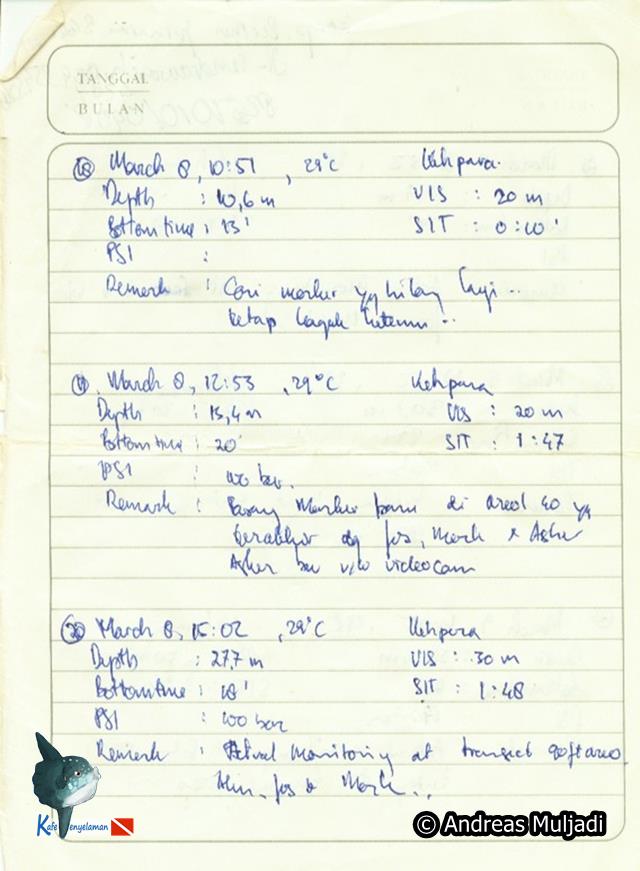 TANGGAL
BULAN
18 March 8, 10:51 , 29°C Kehpara.
Depth : 10,6 m VIS : 20 m
Bottom time : 13' SIT : 0:10'
PSI :
Remark : Cari marker yg hilang lagi ..
tetap
19. March 8, 12:53 , 29°C Kehpara
Depth : 15,4 m VIS : 20 m
Bottom time : 20' SIT : 1:47
PSI : 100 bar.
Remark : Pasang Marker baru di area 40 yg
terakhir dg Jos, Mark & Asher
Asher videocam
20 March 8, 15:02 , 29°C Kehpara
Depth : 27,7 m VIS : 30 m
Bottom time : 18' SIT : 1:48
PSI : 100 bar
Remark : Actual monitoring at transect 90 ft area.
Jos & Mark..
Kafe Penyelaman
© Andreas Muljadi